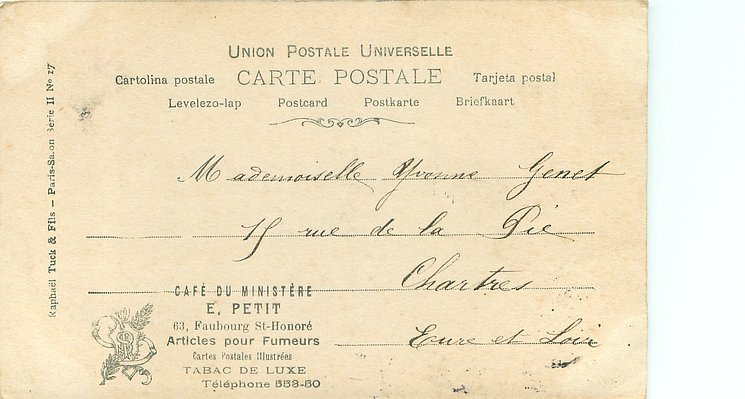 UNION POSTALE UNIVERSELLE
Cartolina postale CARTE POSTALE Tarjeta postal
Levelezo-lap Postcard Postkarte Briefkaart
Raphaël Tuck & Fils – Paris-Salon Série II No 17
Mademoiselle Yvonne Genet
15 rue de la Pie
Chartres
Eure et Loir
CAFÉ DU MINISTÈRE
E. PETIT
63, Faubourg St-Honoré
Articles pour Fumeurs
Cartes Postales Illustrées
TABAC DE LUXE
Téléphone 558-50